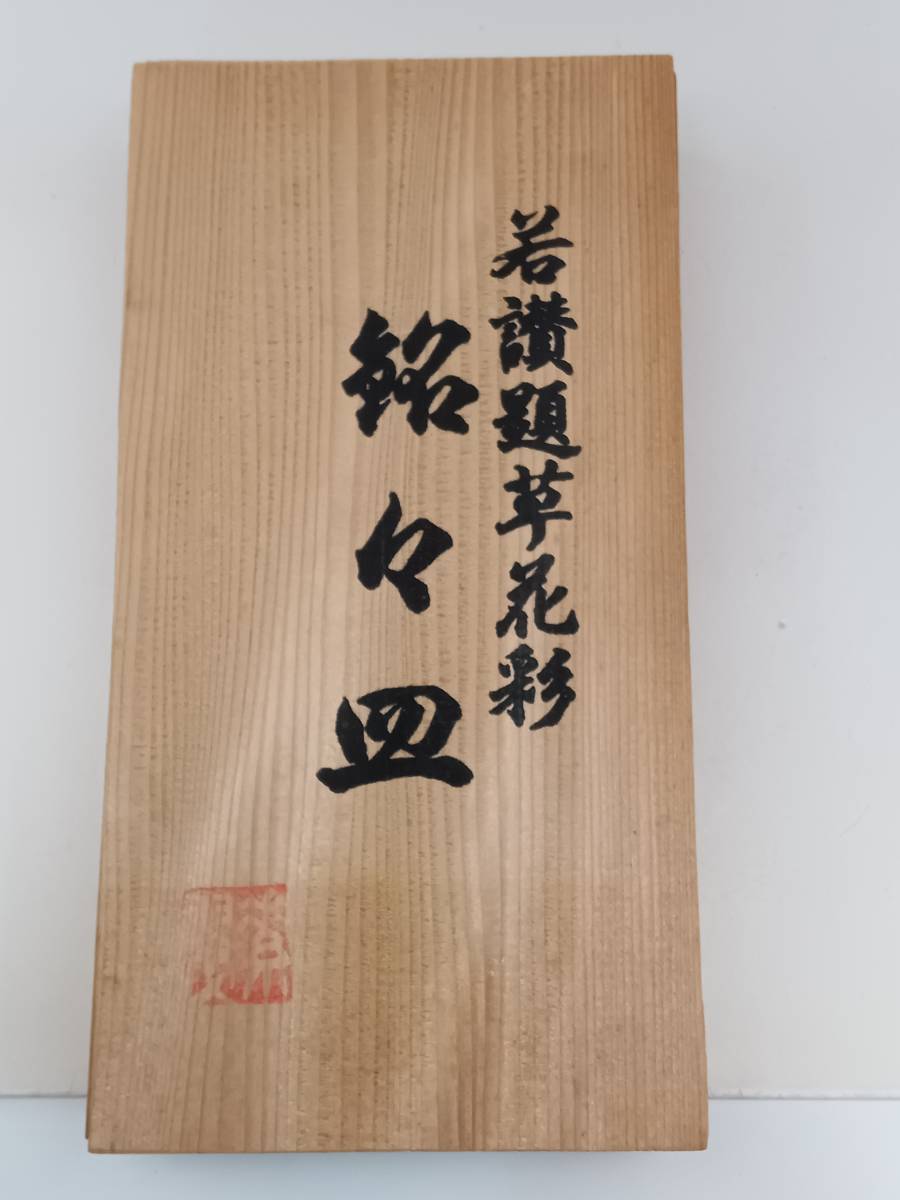 若讃題草花彩
銘々皿